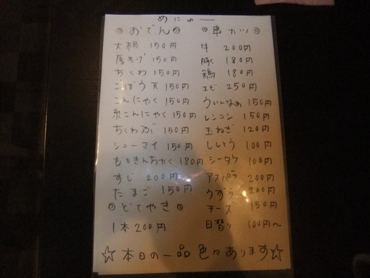 めにゅー
◎おでん◎
大根 150円
厚あげ 150円
ちくわ 150円
ごぼう天 150円
こんにゃく 150円
糸こんにゃく 150円
ちくわぶ 150円
シューマイ 150円
もちきんちゃく 180円
すじ 200円
たまご 150円
◎どてやき◎
1本 200円
◎串カツ◎
牛 200円
豚 180円
鶏 180円
エビ 250円
ういんなぁ 150円
レンコン 150円
玉ねぎ 120円
ししとう 100円
シータケ 100円
アスパラ 200円
うずら 200円
チーズ 150円
日替り 100円〜
☆本日の一品色々あります☆